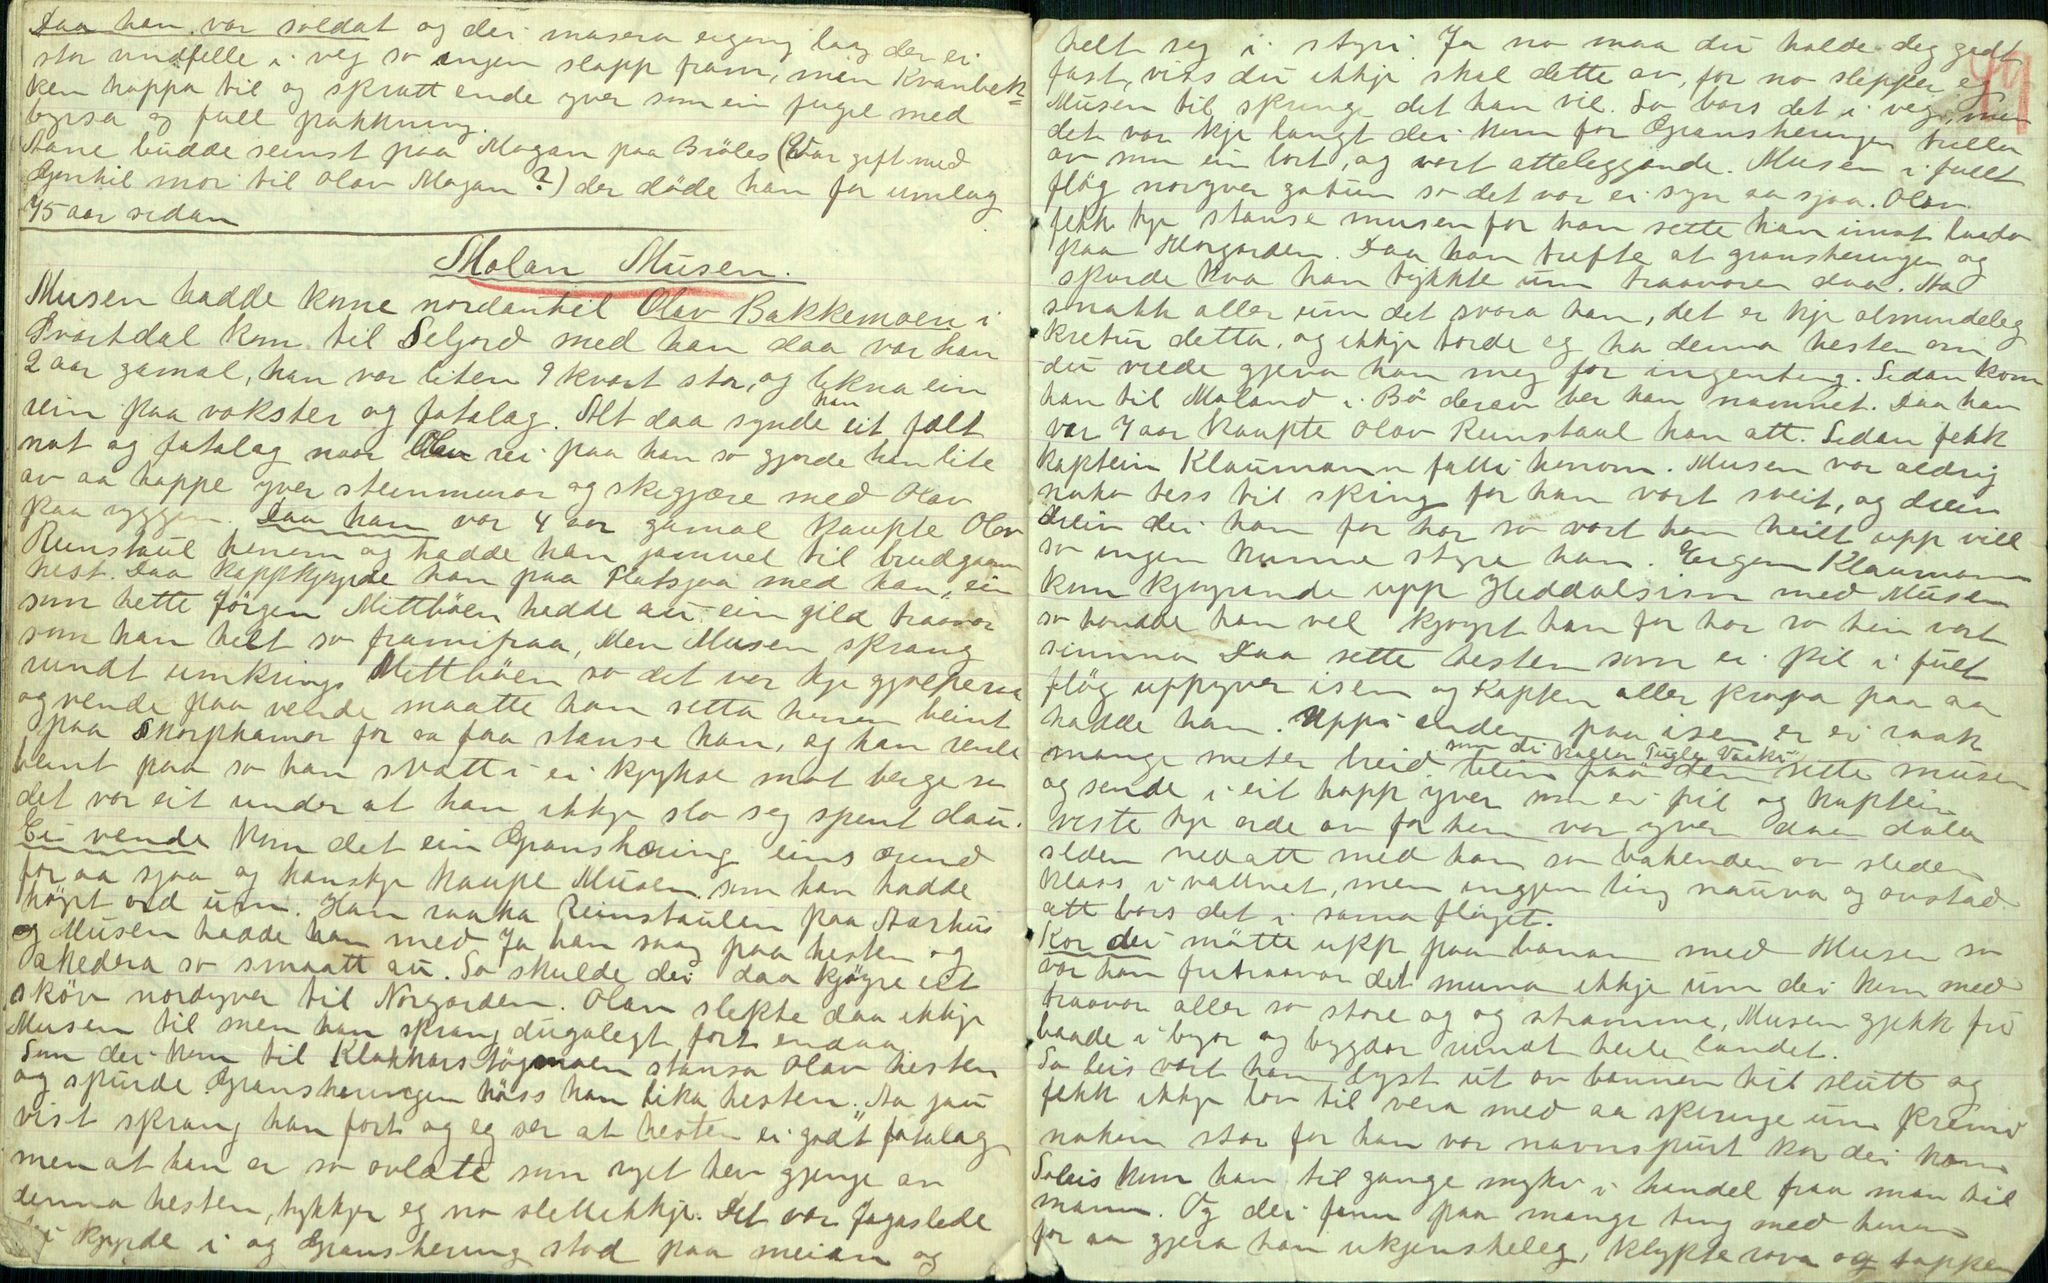 Daa han var soldat og dei masera eigong laag der ei
stor vindfelle i veg so ingen slapp fram, min Kvanbek-
ken hoppa til og skratt ende yver som ein fugel med
byrsa og full pakkning.
Aane budde seinst paa Mogan paa Bröles (Var gift med
Gunhil mor til Olav Mogan?) der döde han for umlag
45 aar sidan
Molan Musen.
Musen hadde kome nordantil Olav Bakkemoen i
Svartdal kom til Seljord med han daa var han
2 aar gamal, han var liten 9 kvart stor, og likna ein
rein paa vokster og fotalag. Alt daa synde han eit fælt
mot og fotalag naar Olav rei paa han so gjorde han lite
av aa hoppe yver steinmurar og skigjære med Olav
paa ryggen. Daa han var 4 aar gamal kaupte Olav
Reinstaul honom og hadde han jamvel til brudgoms
hest. Daa kappkjøyrde han paa Flatsjaa med han, ein
som hette Jörgen Mittböen hadde au ein gild travar
som han helt so framifraa, Men Musen sprang
rundt umkring Mittböen so det var kje gjølperiæ
og vende paa vende maatte han setta honom beint
paa Skorphamor for aa faa stanse han, og han rende
beint paa so han svatt i ei kjykse mot berge so
det var eit under at han ikkje slo seg spent dau.
Ei vende kom det ein Gransherring eins ærend
for aa sjaa og kanskje kaupe Musen som han hadde
höyrt ord um. Han raaka Reinstaulen paa Aarhus
og Musen hadde han med Ja han saag paa hesten og
akedera so smaatt au. So skulde dei daa kjöyre eit
sköv nordyver til Norgarden. Olav slepte daa ikkje
Musen til men han sprang dugalegt fort endaa.
Som dei kom til Klakkarstögmoen stansa Olav hesten
og spurde Gransheringen höss han lika hesten. "Aa jau
vist sprang han fort og eg ser at hesten ei godt fotalag
men at han er so ovlæte som ryet hev gjenge av
denna hesten, tykkjer eg no slettikkje. Det var fagaslede
dei kjyrde i og Gransherring stod paa meian og
helt seg i styri. Ja no maa du halde deg godt
fast, viss du ikkje skal dette av, for no slepper eg
Musen til spring det han vil. So bars det i veg, men
det var kje langt dei kom for Gransheringen trilla
av som ein lort, og vart atteleggande. Musen i fullt
flög noryver gatun so det var ei syn aa sjaa. Olav
fekk kje stanse musen for han sette han imot laadar
paa Norgarden. Daa han trefte at gransheringen og
spurde kva han tykkte um traavaren daa. Aa
snakk aller um det svara han, det er kje almindeleg
kretur detta, og ikkje torde eg ha denna hesten om
du vilde gjeva han meg for ingenting. Sidan kom
han til Moland i Bö derav ber han namnet. Daa han
var 7 aar kaupte Olav Reinstaul han att. Sidan fekk
kaptein Klaumann fatti honom. Musen var aldrig
noko tess til spring for han vart sveit, og drein
drein dei han for har so vart han heilt upp vill
so ingen kunne styre han. Eigong Klaumann
kom kjøyrande upp Heddalsisen med Musen
so hadde han vel kjøyrt han for har so hein vart
sinna Daa sette hesten som ei pil i fult
flög uppyver isen og Kapten aller krafa paa aa
hadde han. Uppi enden paa isen er ei raak
mange meter breid som di kallar Tugla Vaki bein paa den sette musen
og sende i eit hopp yver som ei pil og kaptein
viste kje orde av for han var yver daa dala
sleden nedatt med han so bakenden av sleden
klass i vattnet, men ingjen ting nauva og avstad
att bars det i sama flöget.
Kor dei mötte upp paa banan med Musen so
var han fritraavar det muna ikkje um dei kom med
traavar aller so store og og stramme, Musen gjekk fri
baade i byar og bygdar rundt heile landet.
So leis vart han lyst ut av bannen til slutt og
fekk ikkje lov til vera med aa springe um premi
nokon stor for han var navnspurt kor dei kom
Soleis kom han til gange mykje i handel fraa man til
mann. Og dei fann paa mange ting med honom
for aa gjera han ukjenskeleg, klypte rova og toppen